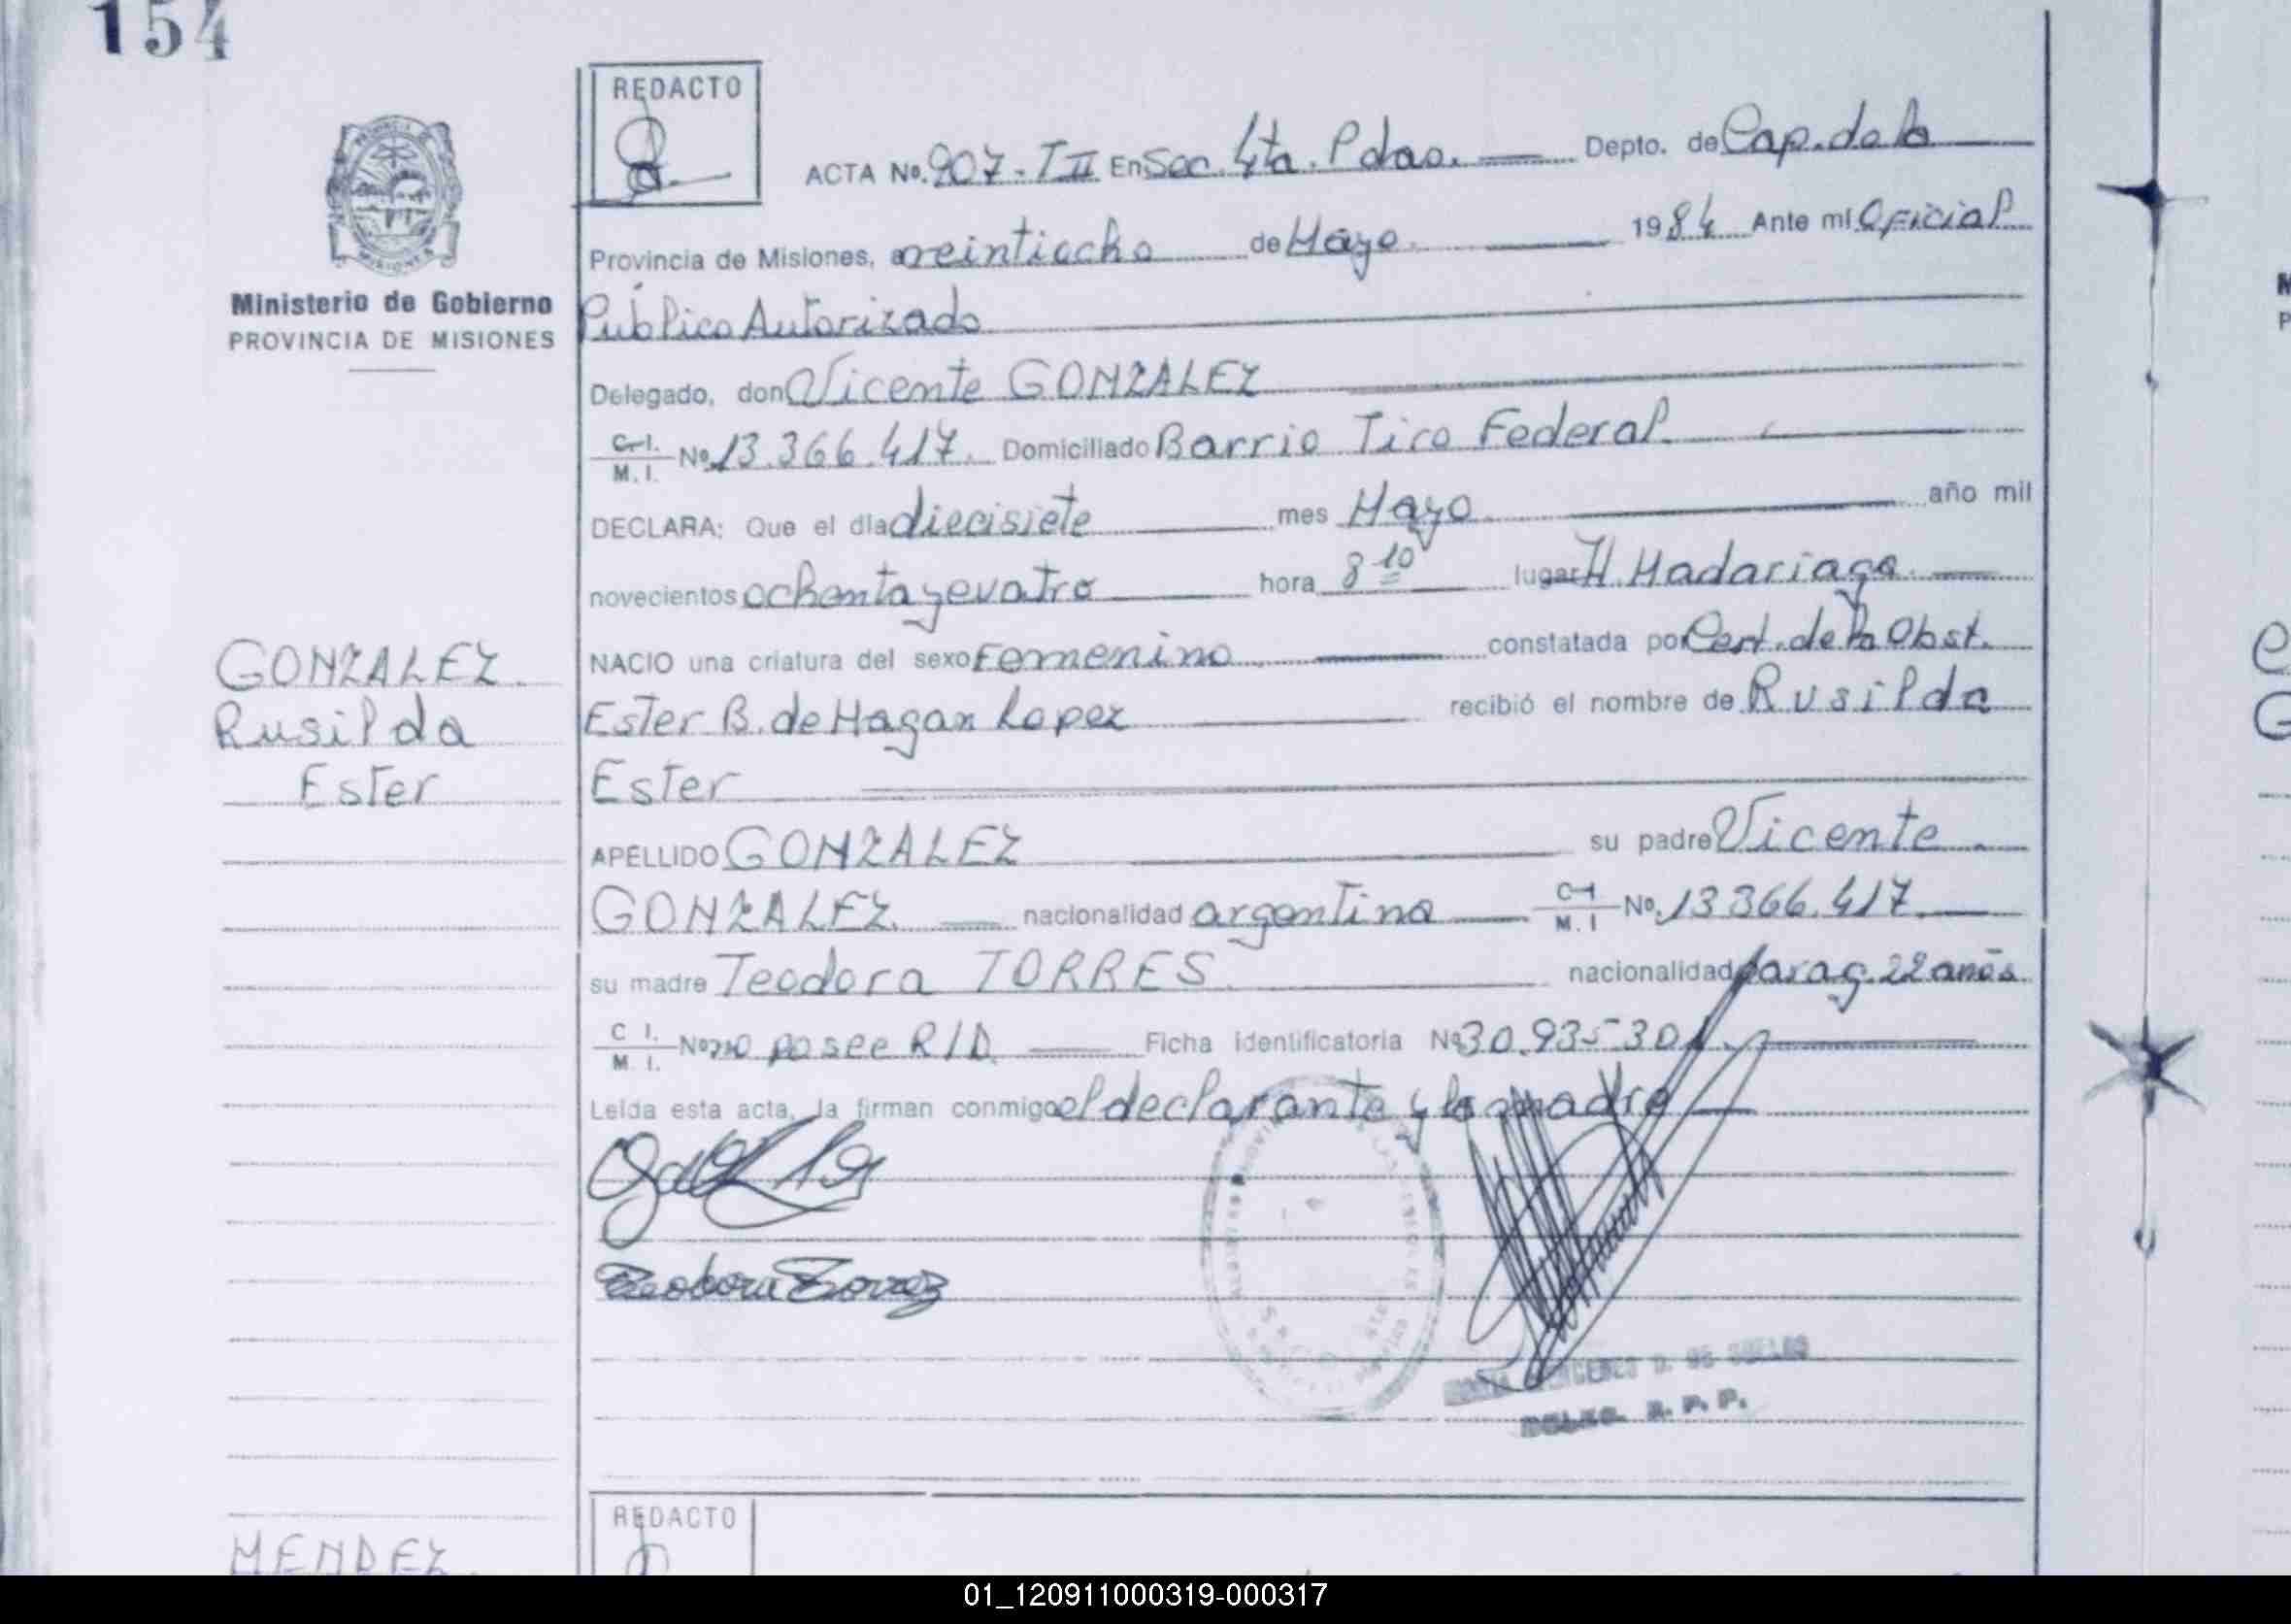 154
REDACTO
ACTA No. 907-T II En Sec. 4ta. Pdas. Depto. de Cap. de la
Provincia de Misiones, a veintiocho de Mayo 1984 Ante mí Oficial
Público Autorizado
Delegado, don Vicente GONZALEZ
C.I. M.I. No. 13.366.417. Domiciliado Barrio Tiro Federal.
DECLARA: Que el día diecisiete mes Mayo año mil
novecientos ochenta y cuatro hora 8 10 lugar H. Madariaga
NACIO una criatura del sexo Femenino constatada por Cert. de la Obst.
Ester B. de Hagan Lopez recibió el nombre de Rusilda
Ester
APELLIDO GONZALEZ su padre Vicente
GONZALEZ nacionalidad argentina C.I. M.I No. 13366.417.
su madre Teodora TORRES nacionalidad parag. 22 años
C I. M. I. No no posee R/D Ficha identificatoria No 30.935301.
Leída esta acta, la firman conmigo el declarante y la madre
Ministerio de Gobierno
PROVINCIA DE MISIONES
GONZALEZ.
Rusilda
Ester
R. P. P.
REDACTO
MENDEZ.
01_120911000319-000317